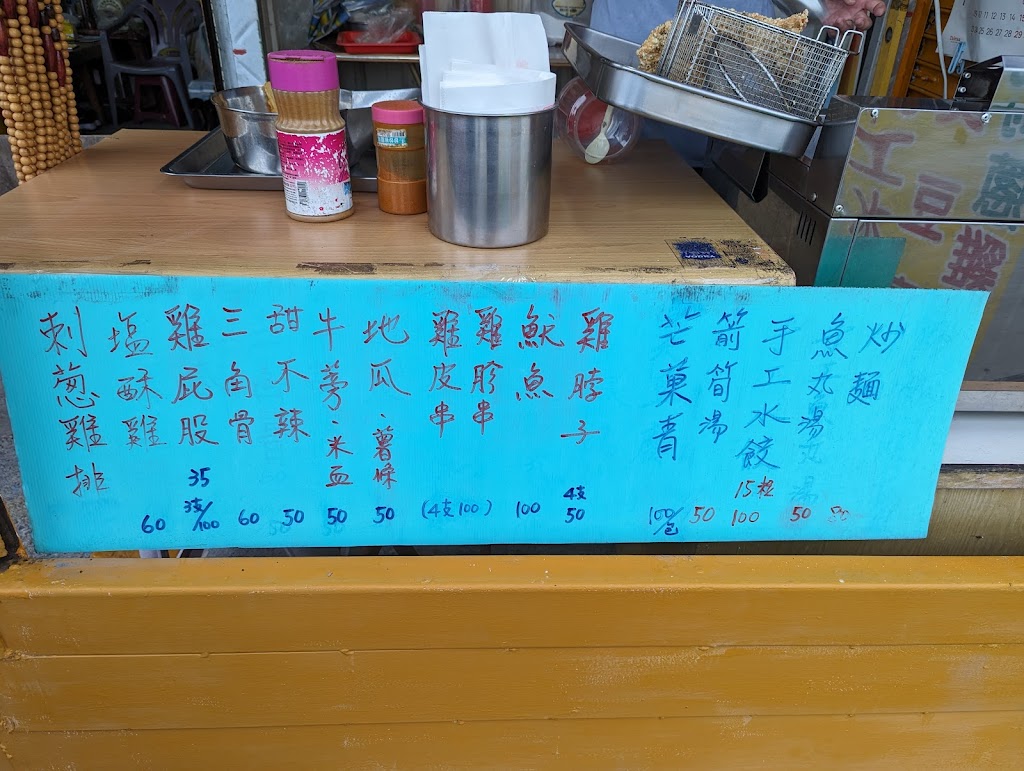 刺蔥雞排
塩酥雞 60
雞屁股 35 3支/100
三角骨 60
甜不辣 50
牛蒡、米血 50
地瓜、薯條 50
雞皮串
雞胗串
(4支100)
魷魚 100
雞脖子 4支 50
芒菓青 100/包
箭筍湯 50
手工水餃 15粒 100
魚丸湯 50
炒麵